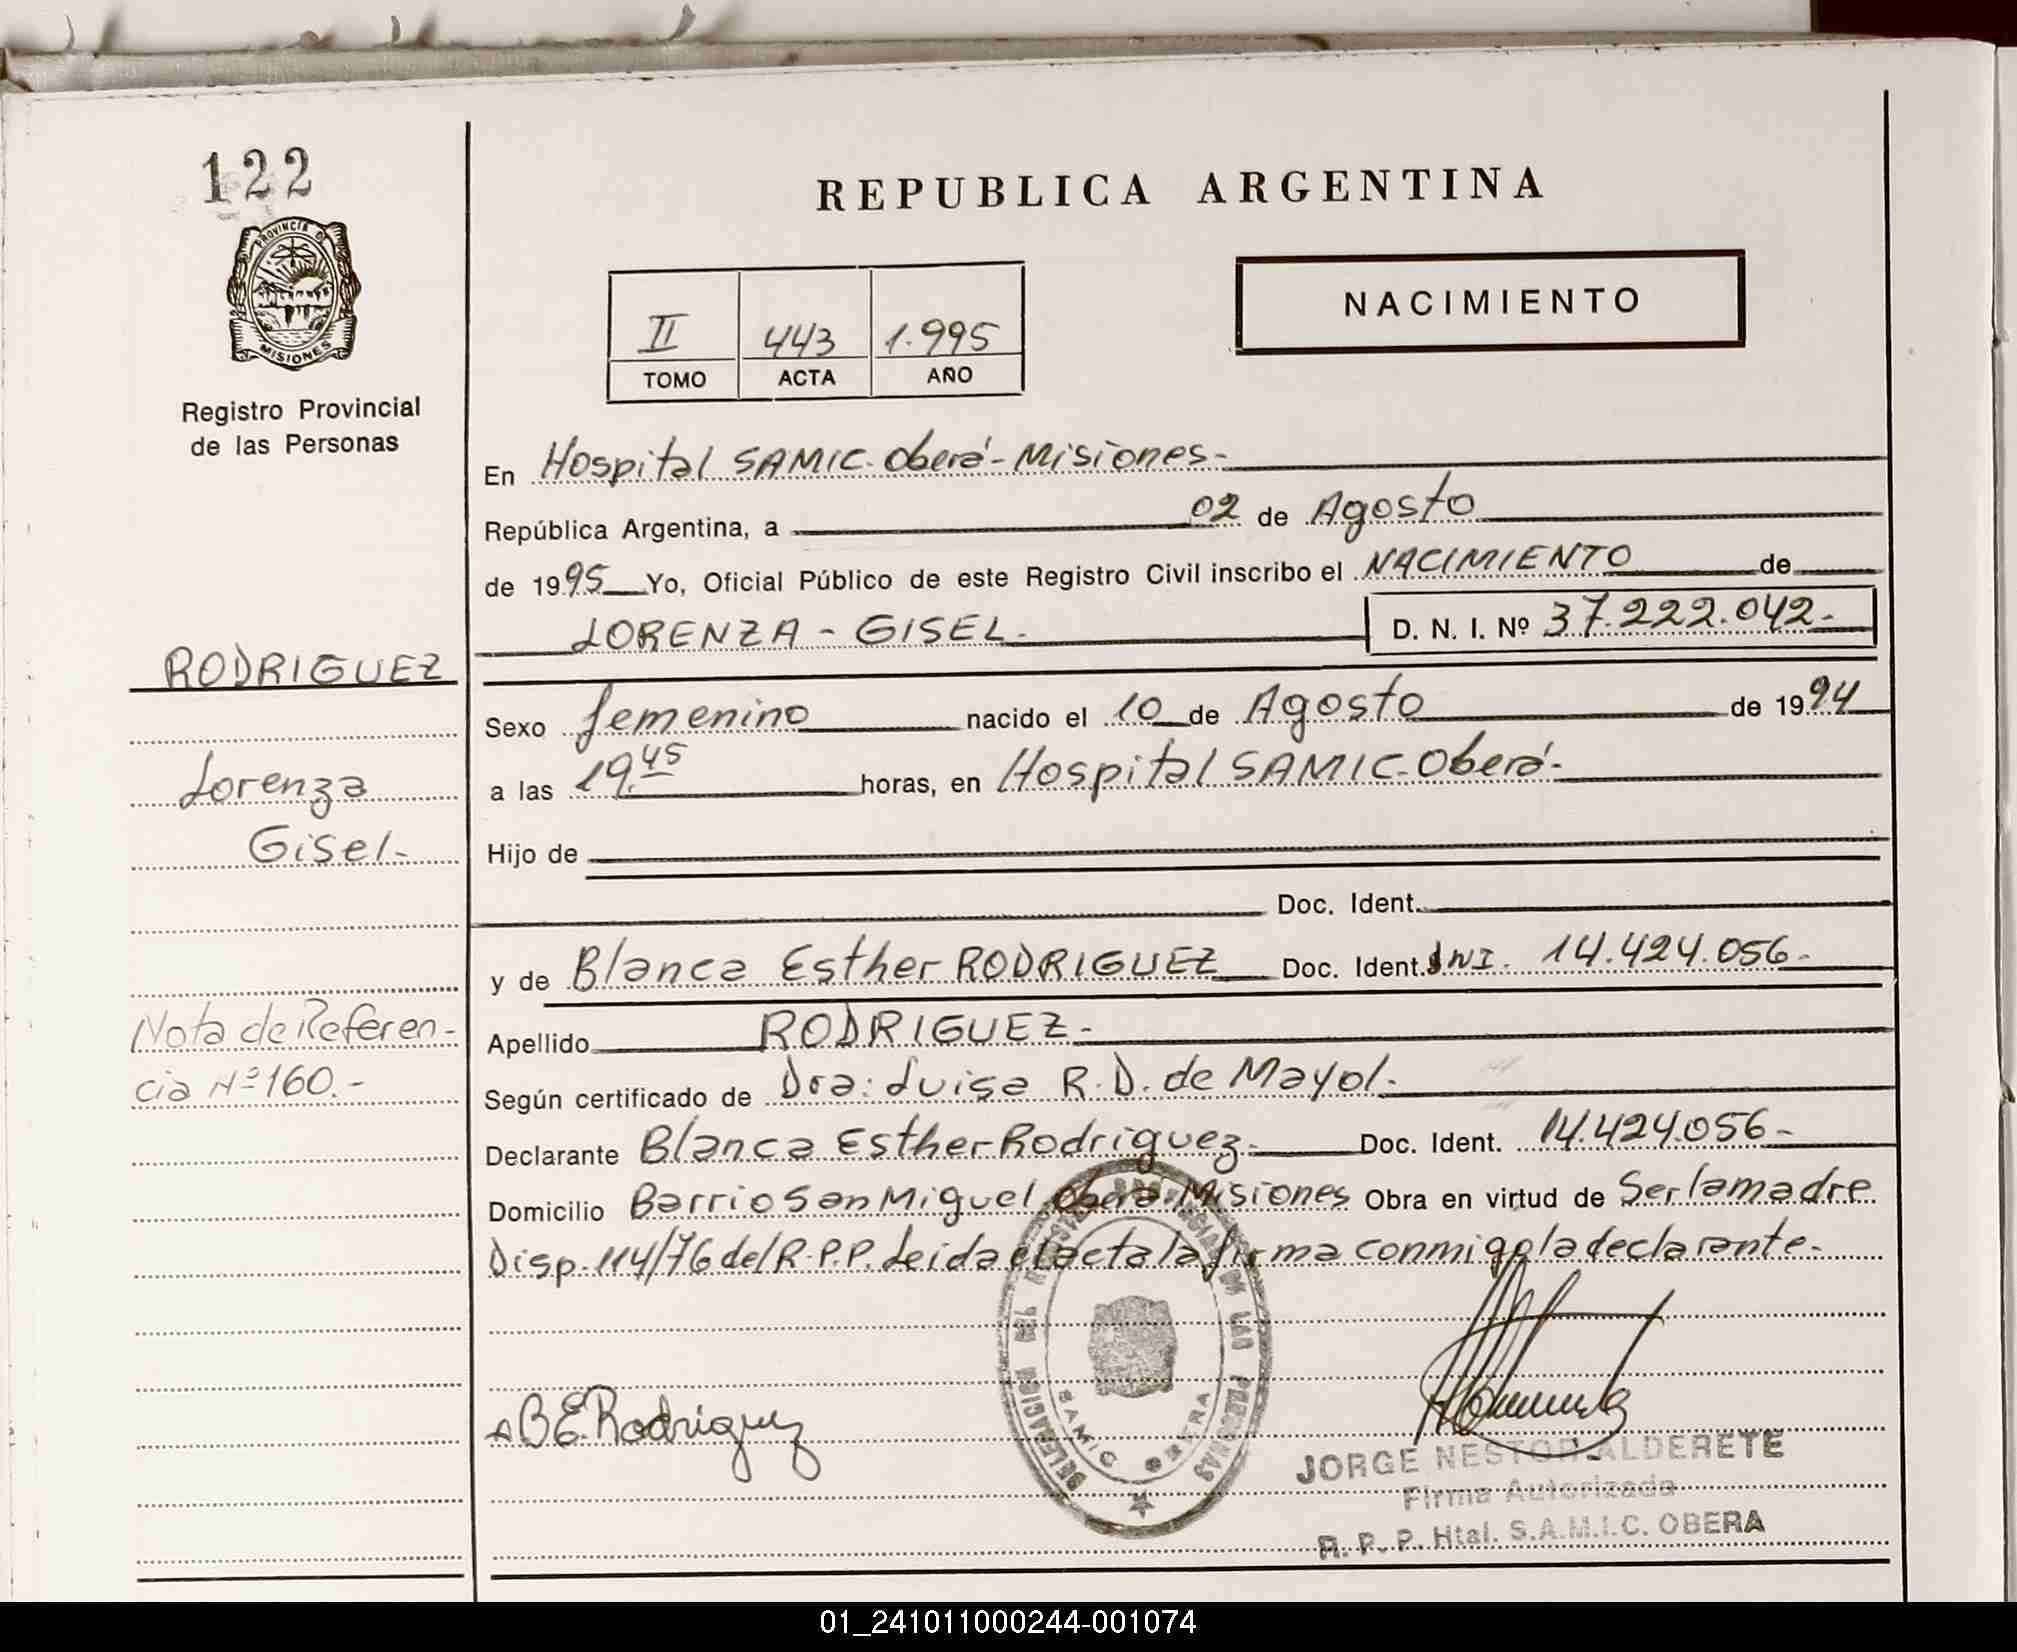 122
PROVINCIA DE
MISIONES
Registro Provincial
de las Personas
REPUBLICA ARGENTINA
NACIMIENTO
II 443 1.995
TOMO ACTA AÑO
En Hospital SAMIC-Oberá-Misiones-
República Argentina, a 02 de Agosto
de 1995 Yo, Oficial Público de este Registro Civil inscribo el NACIMIENTO de
LORENZA - GISEL. D. N. I. Nº 37.222.042.-
RODRIGUEZ
Sexo femenino nacido el 10 de Agosto de 1994
Lorenza
Gisel-
a las 19.45 horas, en Hospital SAMIC-Oberá-
Hijo de
Doc. Ident.
y de Blanca Esther RODRIGUEZ Doc. Ident. DNI. 14.424.056-
Nota de Referen-
cia Nº 160.-
Apellido RODRIGUEZ-
Según certificado de Dra: Luisa R.D. de Mayol.
Declarante Blanca Esther Rodriguez- Doc. Ident. 14.424.056-
Domicilio Barrio San Miguel Oberá-Misiones Obra en virtud de Ser la madre
Disp. 114/76 del R.P.P. Leida el acta la firma conmigo la declarante-
B E. Rodriguez
DELEGACION DEL DE LAS PERSONAS
SAMIC OBERA
JORGE NESTOR ALDERETE
Firma Autorizada
R. P. P. Htal. S.A.M.I.C. OBERA
01_241011000244-001074